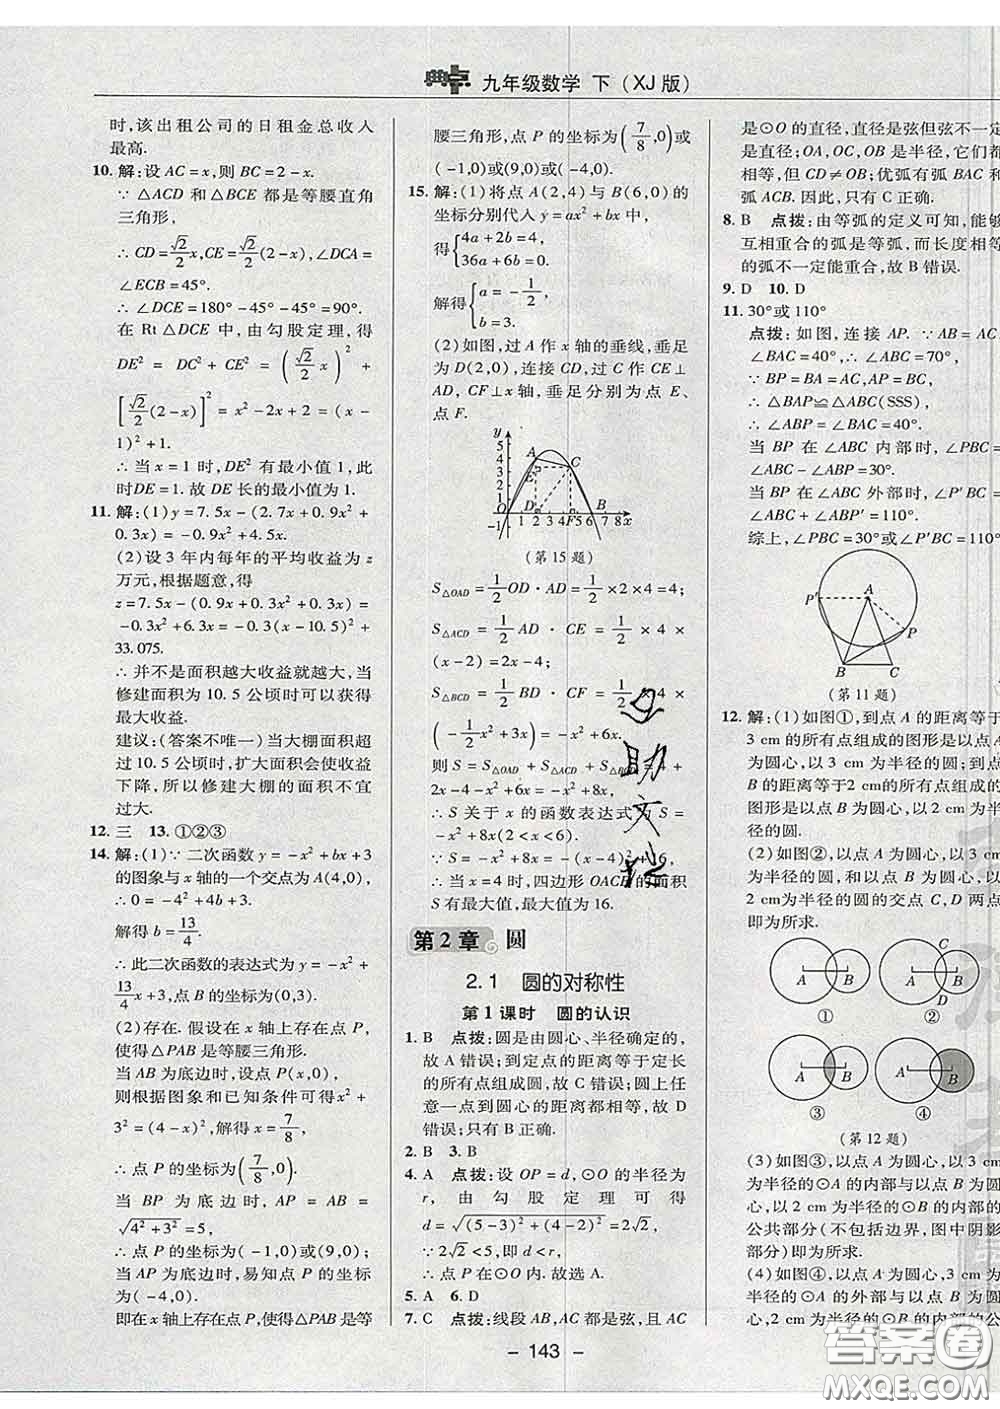 典点 九年级数学 下(XJ版)
时,该出租公司的日租金总收入
最高.
10. 解:设AC=x,则BC=2-x.
∵△ACD和△BCE都是等腰直角
三角形,
∴CD=√2/2 x,CE=√2/2(2-x),∠DCA=
∠ECB=45°.
∴∠DCE=180°-45°-45°=90°.
在Rt△DCE中,由勾股定理,得
DE²=DC²+CE²=(√2/2 x)²+
[√2/2(2-x)]²=x²-2x+2=(x-
1)²+1.
∴当x=1时,DE²有最小值1,此
时DE=1.故DE长的最小值为1.
11. 解:(1)y=7.5x-(2.7x+0.9x²+
0.3x)=-0.9x²+4.5x.
(2)设3年内每年的平均收益为z
万元,根据题意,得
z=7.5x-(0.9x+0.3x²+0.3x)=
-0.3x²+6.3x=-0.3(x-10.5)²+
33.075.
∴并不是面积越大收益就越大,当
修建面积为10.5公顷时可以获得
最大收益.
建议:(答案不唯一)当大棚面积超
过10.5公顷时,扩大面积会使收益
下降,所以修建大棚的面积不宜
过大.
12. 三 13. ①②③
14. 解:(1)∵二次函数y=-x²+bx+3
的图象与x轴的一个交点为A(4,0),
∴0=-4²+4b+3,
解得b=13/4.
∴此二次函数的表达式为y=-x²+
13/4 x+3,点B的坐标为(0,3).
(2)存在.在x轴上存在点P,
使得△PAB是等腰三角形.
当AB为底边时,设点P(x,0),
则根据图象和已知条件可得x²+
3²=(4-x)²,解得x=7/8,
∴点P的坐标为(7/8,0);
当BP为底边时,AP=AB=
√(4²+3²)=5,
∴点P的坐标为(-1,0)或(9,0);
当AP为底边时,易知点P的坐标
为(-4,0).
即在x轴上存在点P,使得△PAB是等
腰三角形,点P的坐标为(7/8,0)或
(-1,0)或(9,0)或(-4,0).
15. 解:(1)将点A(2,4)与B(6,0)的
坐标分别代入y=ax²+bx中,
得{4a+2b=4,
36a+6b=0.
解得{a=-1/2,
b=3.
(2)如图,过A作x轴的垂线,垂足
为D(2,0),连接CD,过C作CE⊥
AD,CF⊥x轴,垂足分别为点E、
点F.
y
5
4
3
2
1
A
C
E
O
D
B
-1 1 2 3 4 F5 6 7 8 x
-1
(第15题)
S△OAD=1/2 OD·AD=1/2×2×4=4;
S△ACD=1/2 AD·CE=1/2×4×
(x-2)=2x-4;
S△BCD=1/2 BD·CF=1/2×4×
(-1/2x²+3x)=-x²+6x.
则S=S△OAD+S△ACD+S△BCD=4+
2x-4-x²+6x=-x²+8x.
∴S关于x的函数表达式为S=
-x²+8x(2<x<6).
∵S=-x²+8x=-(x-4)²+16,
∴当x=4时,四边形OACB的面积
S有最大值,最大值为16.
第2章 圆
2.1 圆的对称性
第1课时 圆的认识
1. B 点拨:圆是由圆心、半径确定的,
故A错误;到定点的距离等于定长
的所有点组成圆,故C错误;圆上任
意一点到圆心的距离都相等,故D
错误;只有B正确.
2. B 3. B
4. A 点拨:设OP=d,⊙O的半径为
r,由勾股定理可得
d=√((5-3)²+(4-2)²)=2√2,
∵2√2<5,即d<r,
∴点P在⊙O内.故选A.
5. A 6. D
7. C 点拨:线段AB,AC都是弦,且AC
是⊙O的直径,直径是弦但弦不一定
是直径;OA,OC,OB是半径,它们都
相等,但CD≠OB;优弧有弧BAC和
弧ACB.因此,只有C正确.
8. B 点拨:由等弧的定义可知,能够
互相重合的弧是等弧,而长度相等
的弧不一定能重合,故B错误.
9. D 10. D
11. 30°或110°
点拨:如图,连接AP.∵AB=AC
∠BAC=40°,∴∠ABC=70°,
∵BP=BA=AC,AP=BC,
∴△BAP≌△ABC(SSS).
∴∠ABP=∠BAC=40°.
当BP在∠ABC内部时,∠PBC=
∠ABC-∠ABP=30°.
当BP在∠ABC外部时,∠P'BC=
∠ABC+∠ABP'=110°.
综上,∠PBC=30°或∠P'BC=110°
P'
A
P
B
C
(第11题)
12. 解:(1)如图①,到点A的距离等于
3 cm的所有点组成的图形是以点A
为圆心,以3 cm为半径的圆;到点B
的距离等于2 cm的所有点组成的
图形是以点B为圆心,以2 cm为半
径的圆.
(2)如图②,以点A为圆心,以3 cm
为半径的圆与以点B为圆心,以
2 cm为半径的圆的交点C,D两点
即为所求.
A B
①
C
A B
D
②
A B
③
A B
④
(第12题)
(3)如图③,以点A为圆心,以3 cm
为半径的⊙A的内部与以点B为圆
心,以2 cm为半径的⊙B的内部的
公共部分(不包括边界,图中阴影
部分)即为所求.
(4)如图④,以点A为圆心,以3 cm
为半径的⊙A的外部与以点B为圆心,以2 cm
为半径的⊙B的内部的公
- 143 -
答案圈
MXQE.COM